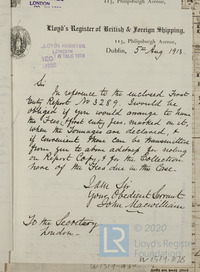 LONDON
Lloyd's Register of British & Foreign Shipping,
115, Philipsburgh Avenue,
Dublin, 5th Aug 1918.
LONDON
Sir
In reference to the enclosed First
Entry Report No 3289. I would be
obliged if you would arrange to have
the Fees, first entry fees, marked on it,
when the Tonnage are declared, &
if convenient these can be transmitted
from you to above address for sealing
on Report Copy, & for the Collection
here of the Fees due in this Case.
I am Sir
Your Obedient Servant
John Macwilliam
To the Secretary
London.
© 2020
Lloyd's Register
Foundation
W1519-0215